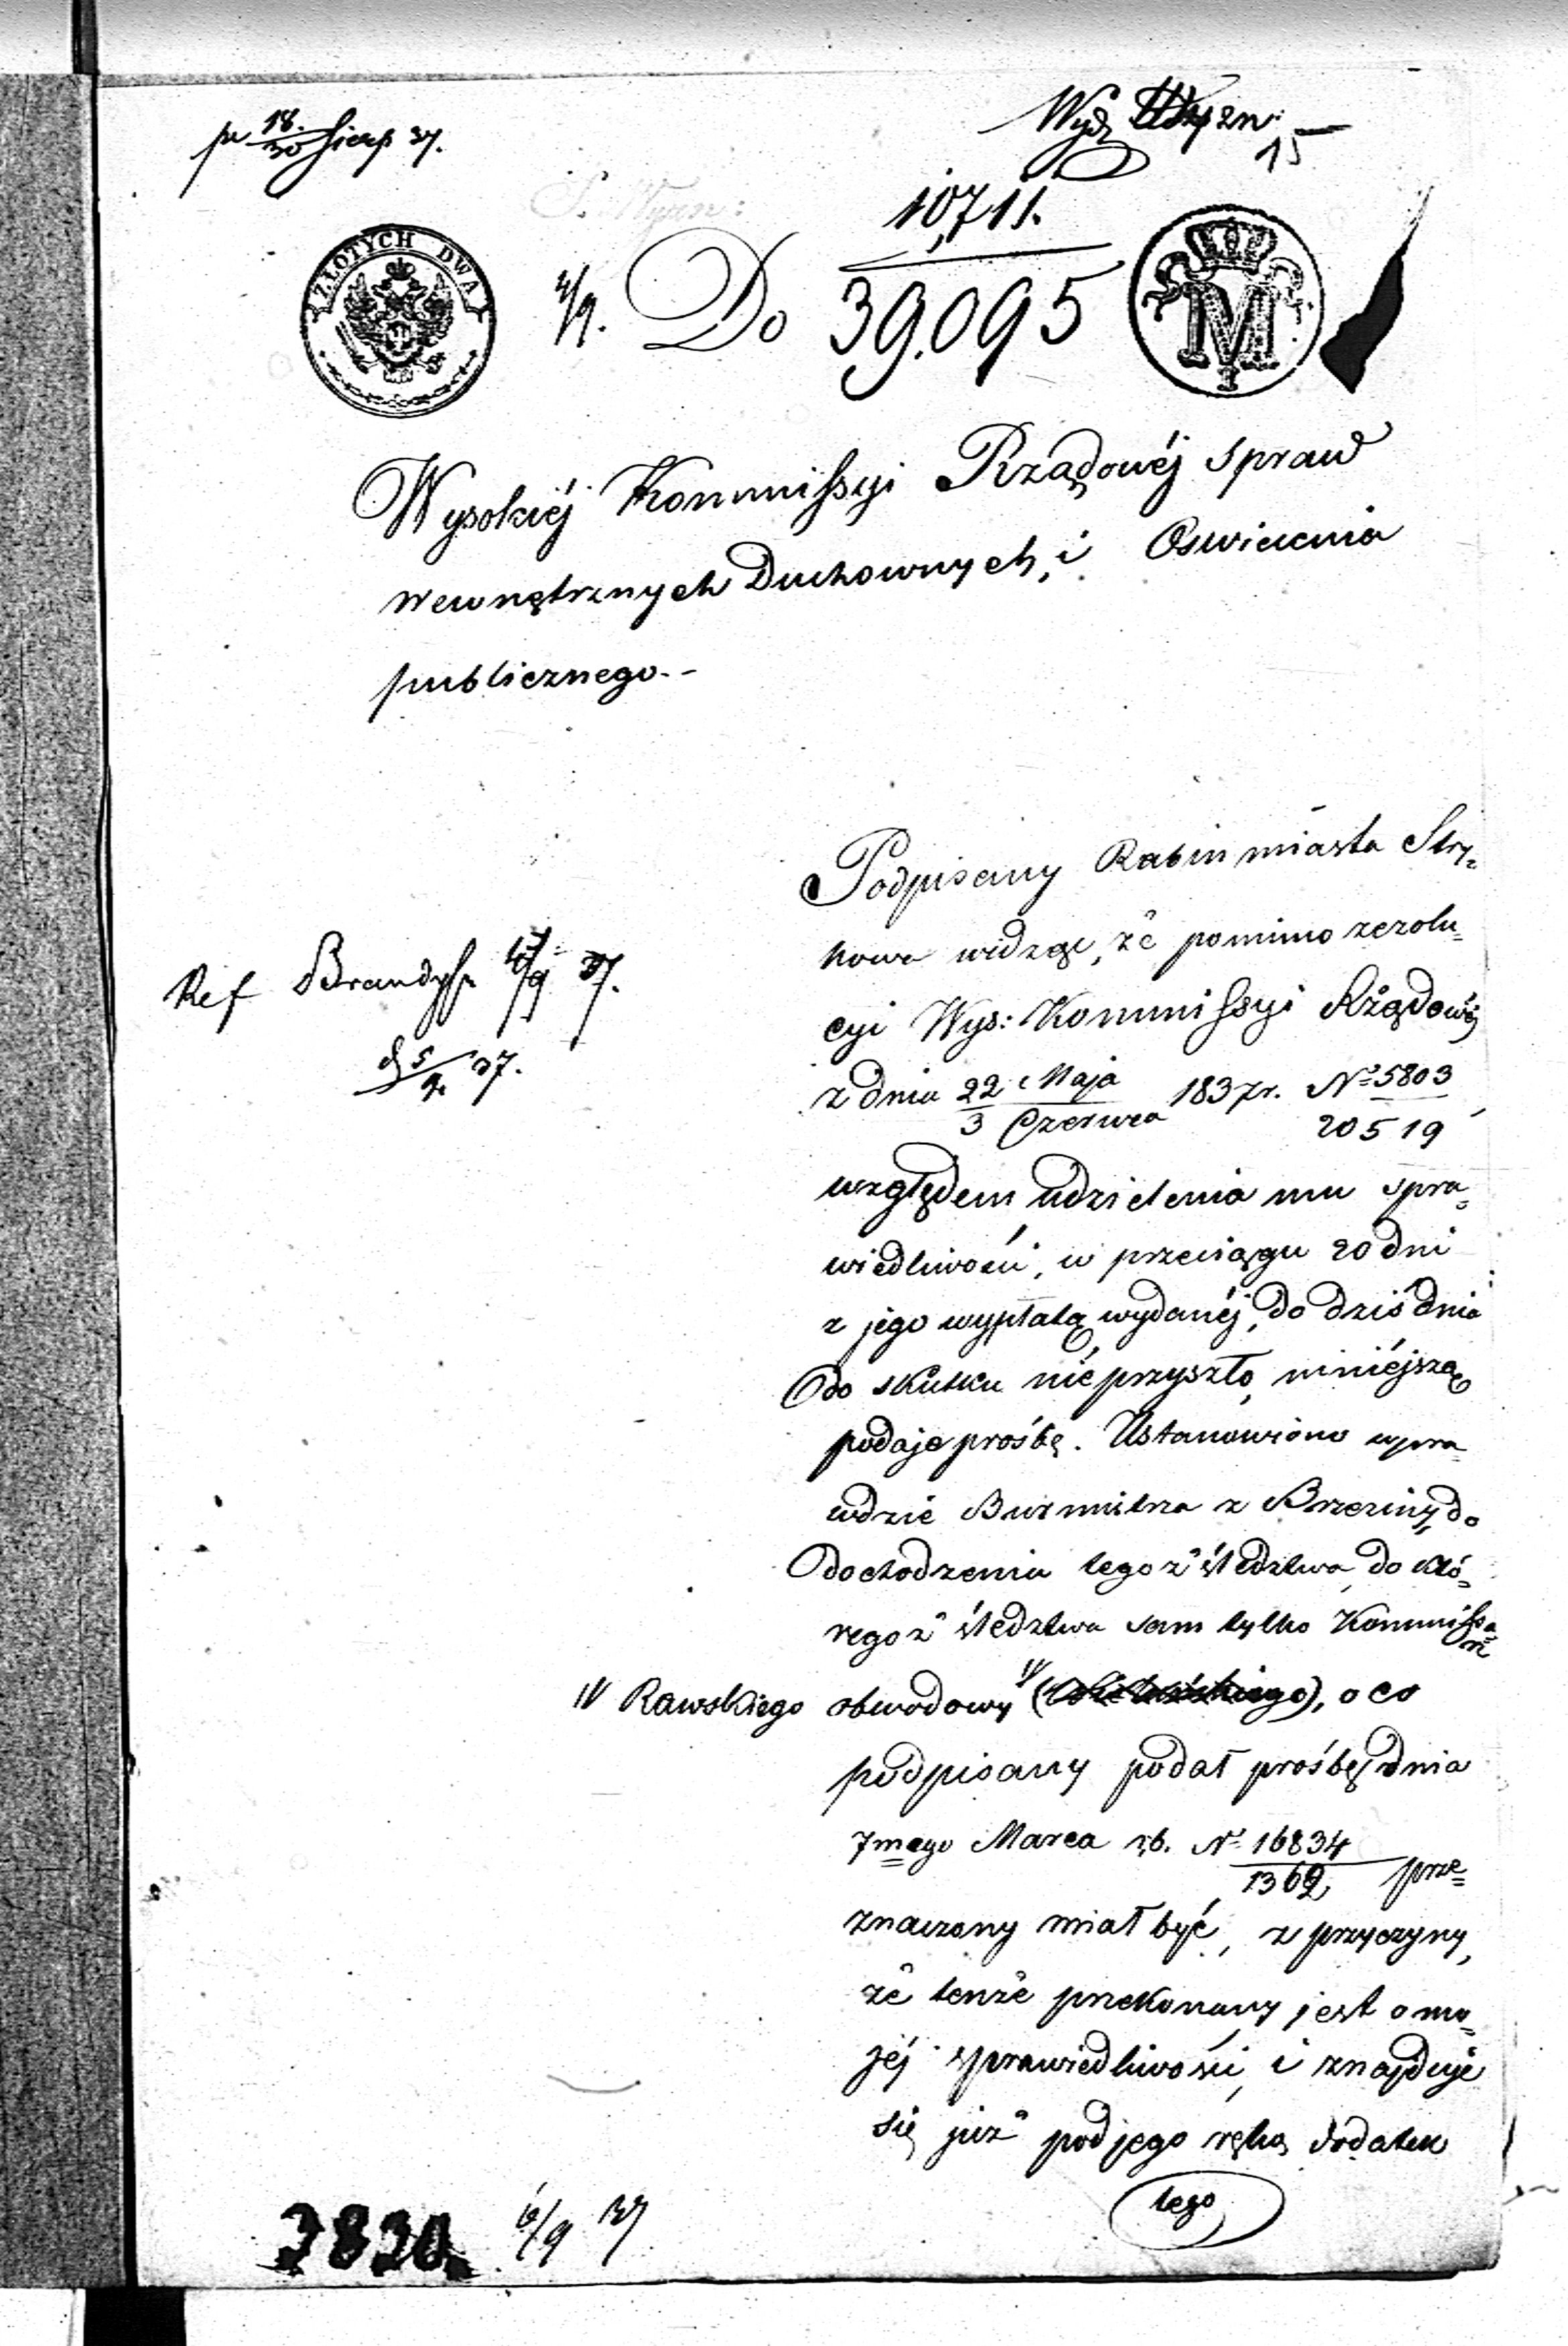 pr 18./30 Sierp 37.
Wydz Wyzn:
15
10,711.
39.095
ZŁOTYCH DWA
4/9.
Do
M
Wysokiéj Kommissyi Rządowéj Spraw
Wewnętrznych Duchownych, i Oswiecenia
publicznego.-
Podpisany Rabin miasta Stry=
kowa widząc, że pomimo rezolu=
cyi Wys: Kommissyi Rządowéj
z dnia 22 Maja / 3 Czerwca 1837 r. No 5803 / 20519,
względem udzielenia mu spra=
wiedliwości, w przeciągu 20 dni
z jego wypłatą, wydanéj, do dziś dnia
do skutku nie przyszło, niniéjszą
podaje prośbę. Ustanowiono wpra=
wdzie Burmitrza z Brzeziny, do
dochodzenia tegoż śledztwa, do któ=
regoż śledztwa sam tylko Kommissarz
IV Rawskiego
obwodowy IV, o co
podpisany podał prośbę, dnia
7mego Marca r,b. No 16834 / 1369, prze=
znaczony miał być, z przyczyny,
że tenże przekonany jest o mo=
jéj sprawiedliwości, i znajduje
się już pod jego ręką dodatek
tego
Ref Brandys 4/9 37.
5/9 37.
3830.
6/9 37